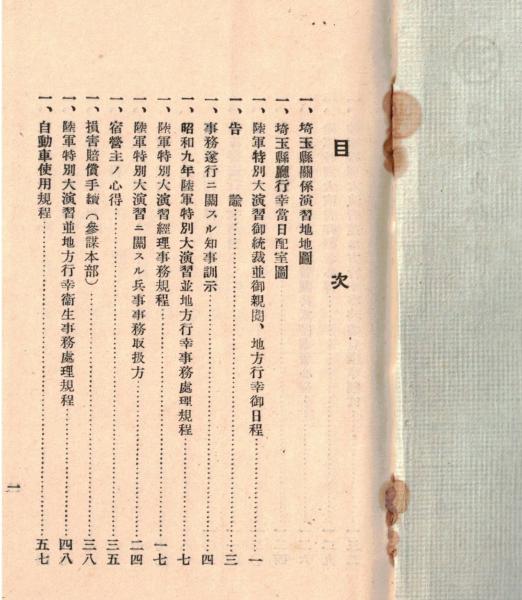 目次
一、埼玉縣關係演習地地圖
一、埼玉縣廳行幸當日配室圖
一、陸軍特別大演習御統裁並御親閲、地方行幸御日程……一
一、告諭……三
一、事務遂行ニ關スル知事訓示……四
一、昭和九年陸軍特別大演習並地方行幸事務處理規程……七
一、陸軍特別大演習經理事務規程……一七
一、陸軍特別大演習ニ關スル兵事事務取扱方……二四
一、宿營主ノ心得……三五
一、損害賠償手續(參謀本部)……三八
一、陸軍特別大演習並地方行幸衞生事務處理規程……四八
一、自動車使用規程……五七
一